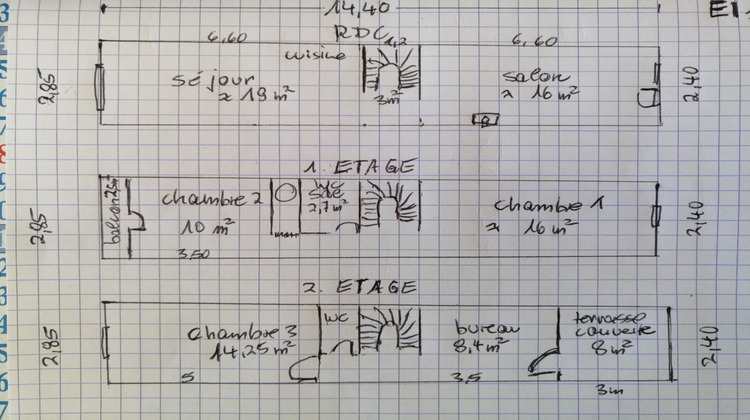 14,40
E1
RDC
6,60
1,2
6,60
cuisine
séjour
≈ 19 m²
3m²
salon
≈ 16 m²
2,85
2,40
1. ETAGE
balcon 2m²
chambre 2
10 m²
3,50
WC
SdB
2,7m²
chambre 1
≈ 16 m²
2,85
2,40
2. ETAGE
chambre 3
14,25m²
5
WC
bureau
8,4m²
3,5
terrasse
couverte
8m²
3m
2,85
2,40